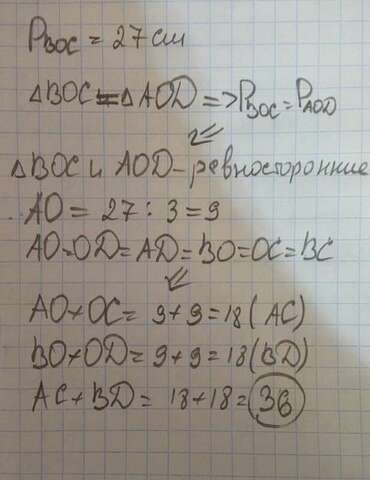 P BOC = 27 см
△BOC = △AOD => P BOC = P AOD
△BOC и AOD - ревносторонние
AO = 27 : 3 = 9
AO=OD=AD=BO=OC=BC
AO+OC = 9+9=18 (AC)
BO+OD = 9+9=18 (BD)
AC+BD = 18+18=36